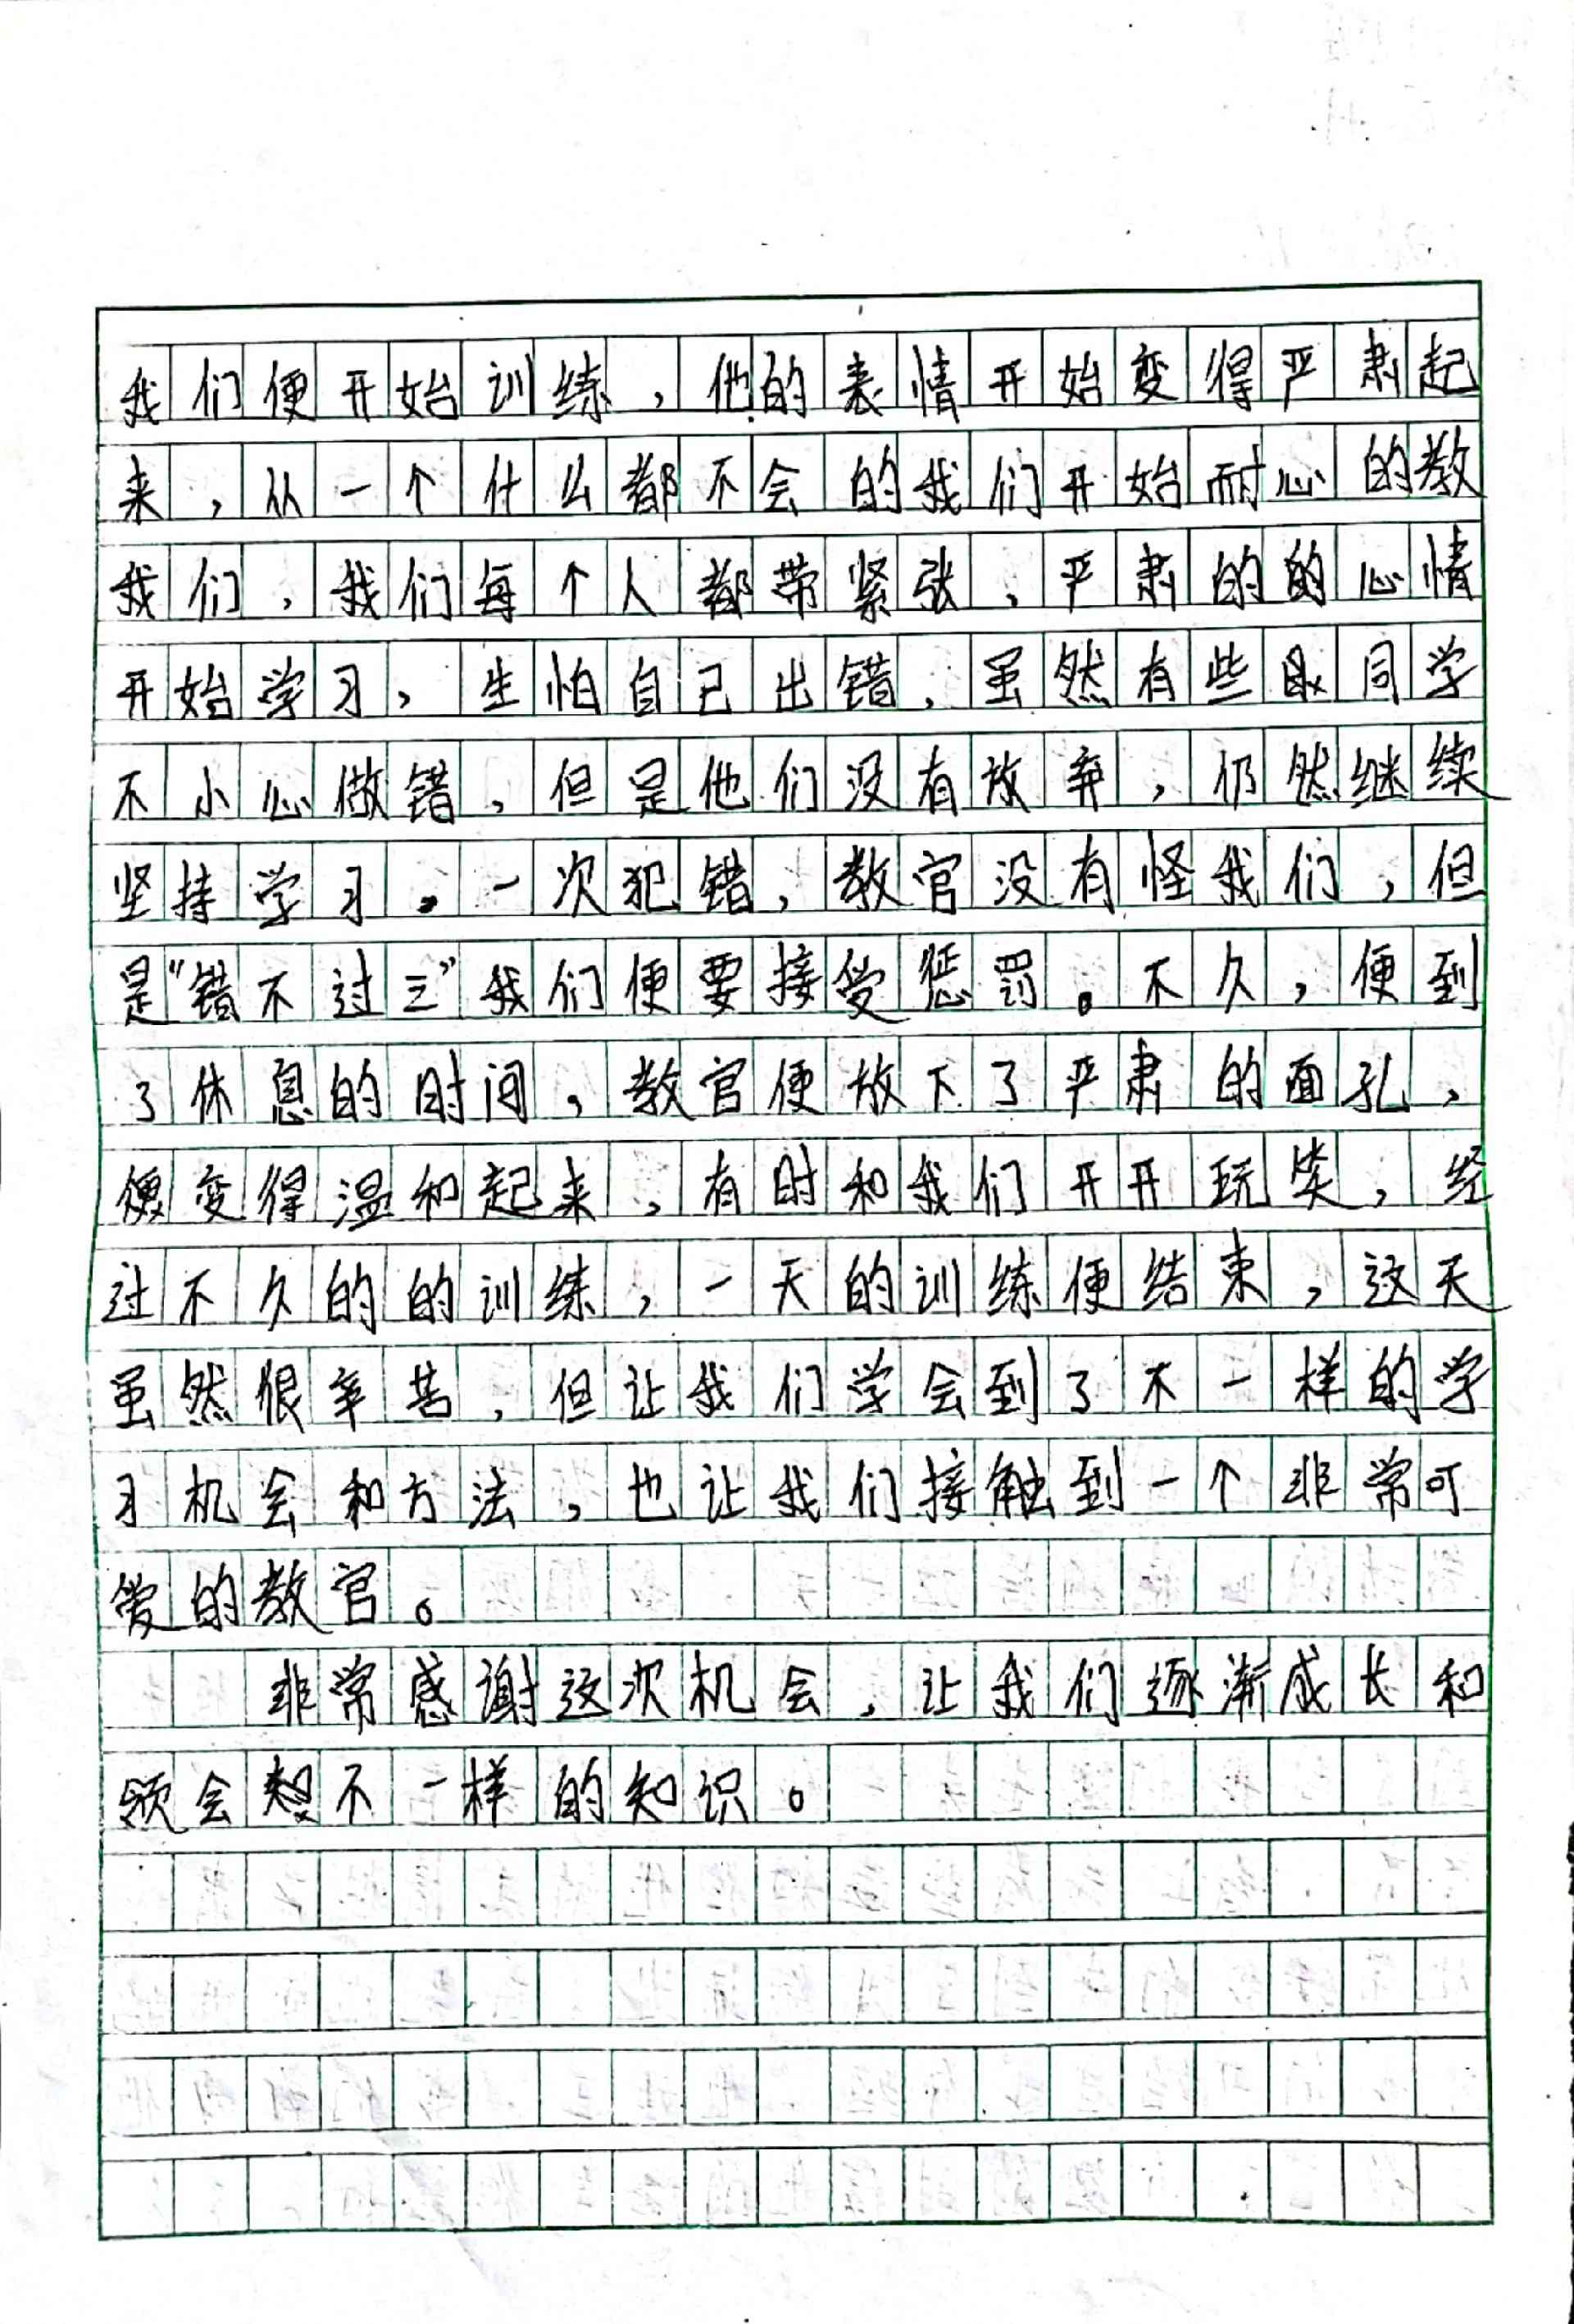 我们便开始训练,他的表情开始变得严肃起
来,从一个什么都不会的我们开始耐心的教
我们,我们每个人都带紧张、严肃的的心情
开始学习,生怕自己出错,虽然有些同学
不小心做错,但是他们没有放弃,仍然继续
坚持学习。一次犯错,教官没有怪我们,但
是“错不过三”我们便要接受惩罚。不久,便到
了休息的时间,教官便放下了严肃的面孔,
便变得温和起来,有时和我们开开玩笑,经
过不久的的训练,一天的训练便结束,这天
虽然很辛苦,但让我们学会到了不一样的学
习机会和方法,也让我们接触到一个非常可
爱的教官。
非常感谢这次机会,让我们逐渐成长和
领会不一样的知识。